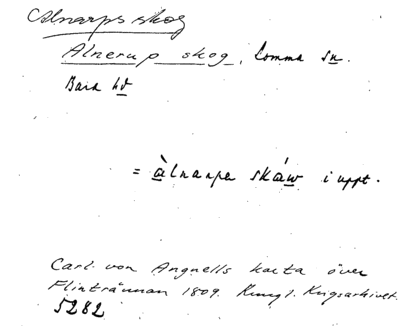 Alnarps skog
Alnerup skog, Lomma sn.
Bara hd
= àlnarpa skáw i uppt.
Carl von Angnells karta över
Flintrännan 1809. Kungl. Krigsarkivet.
5282